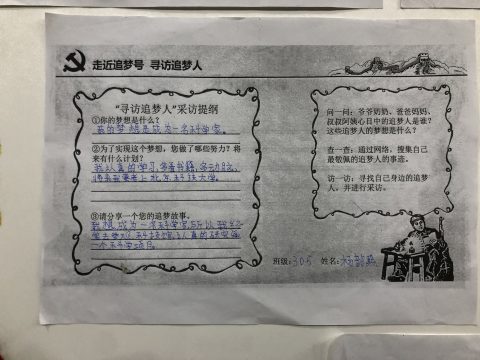 走近追梦号 寻访追梦人
“寻访追梦人”采访提纲
①你的梦想是什么？
我的梦想是成为一名科学家。
②为了实现这个梦想，您做了哪些努力？将
来有什么计划？
我认真的学习，多看书籍，多动脑，
将来我要考上北京科技大学。
③请分享一个您的追梦故事。
我想成为一名科学家，所以我
认真的研究每
一个科学项目。
问一问：爷爷奶奶、爸爸妈妈、
叔叔阿姨心目中的追梦人是谁？
这些追梦人的梦想是什么？
查一查：通过网络，搜集自己
最敬佩的追梦人的事迹。
访一访：寻找自己身边的追梦
人，并进行采访。
班级：305 姓名：杨